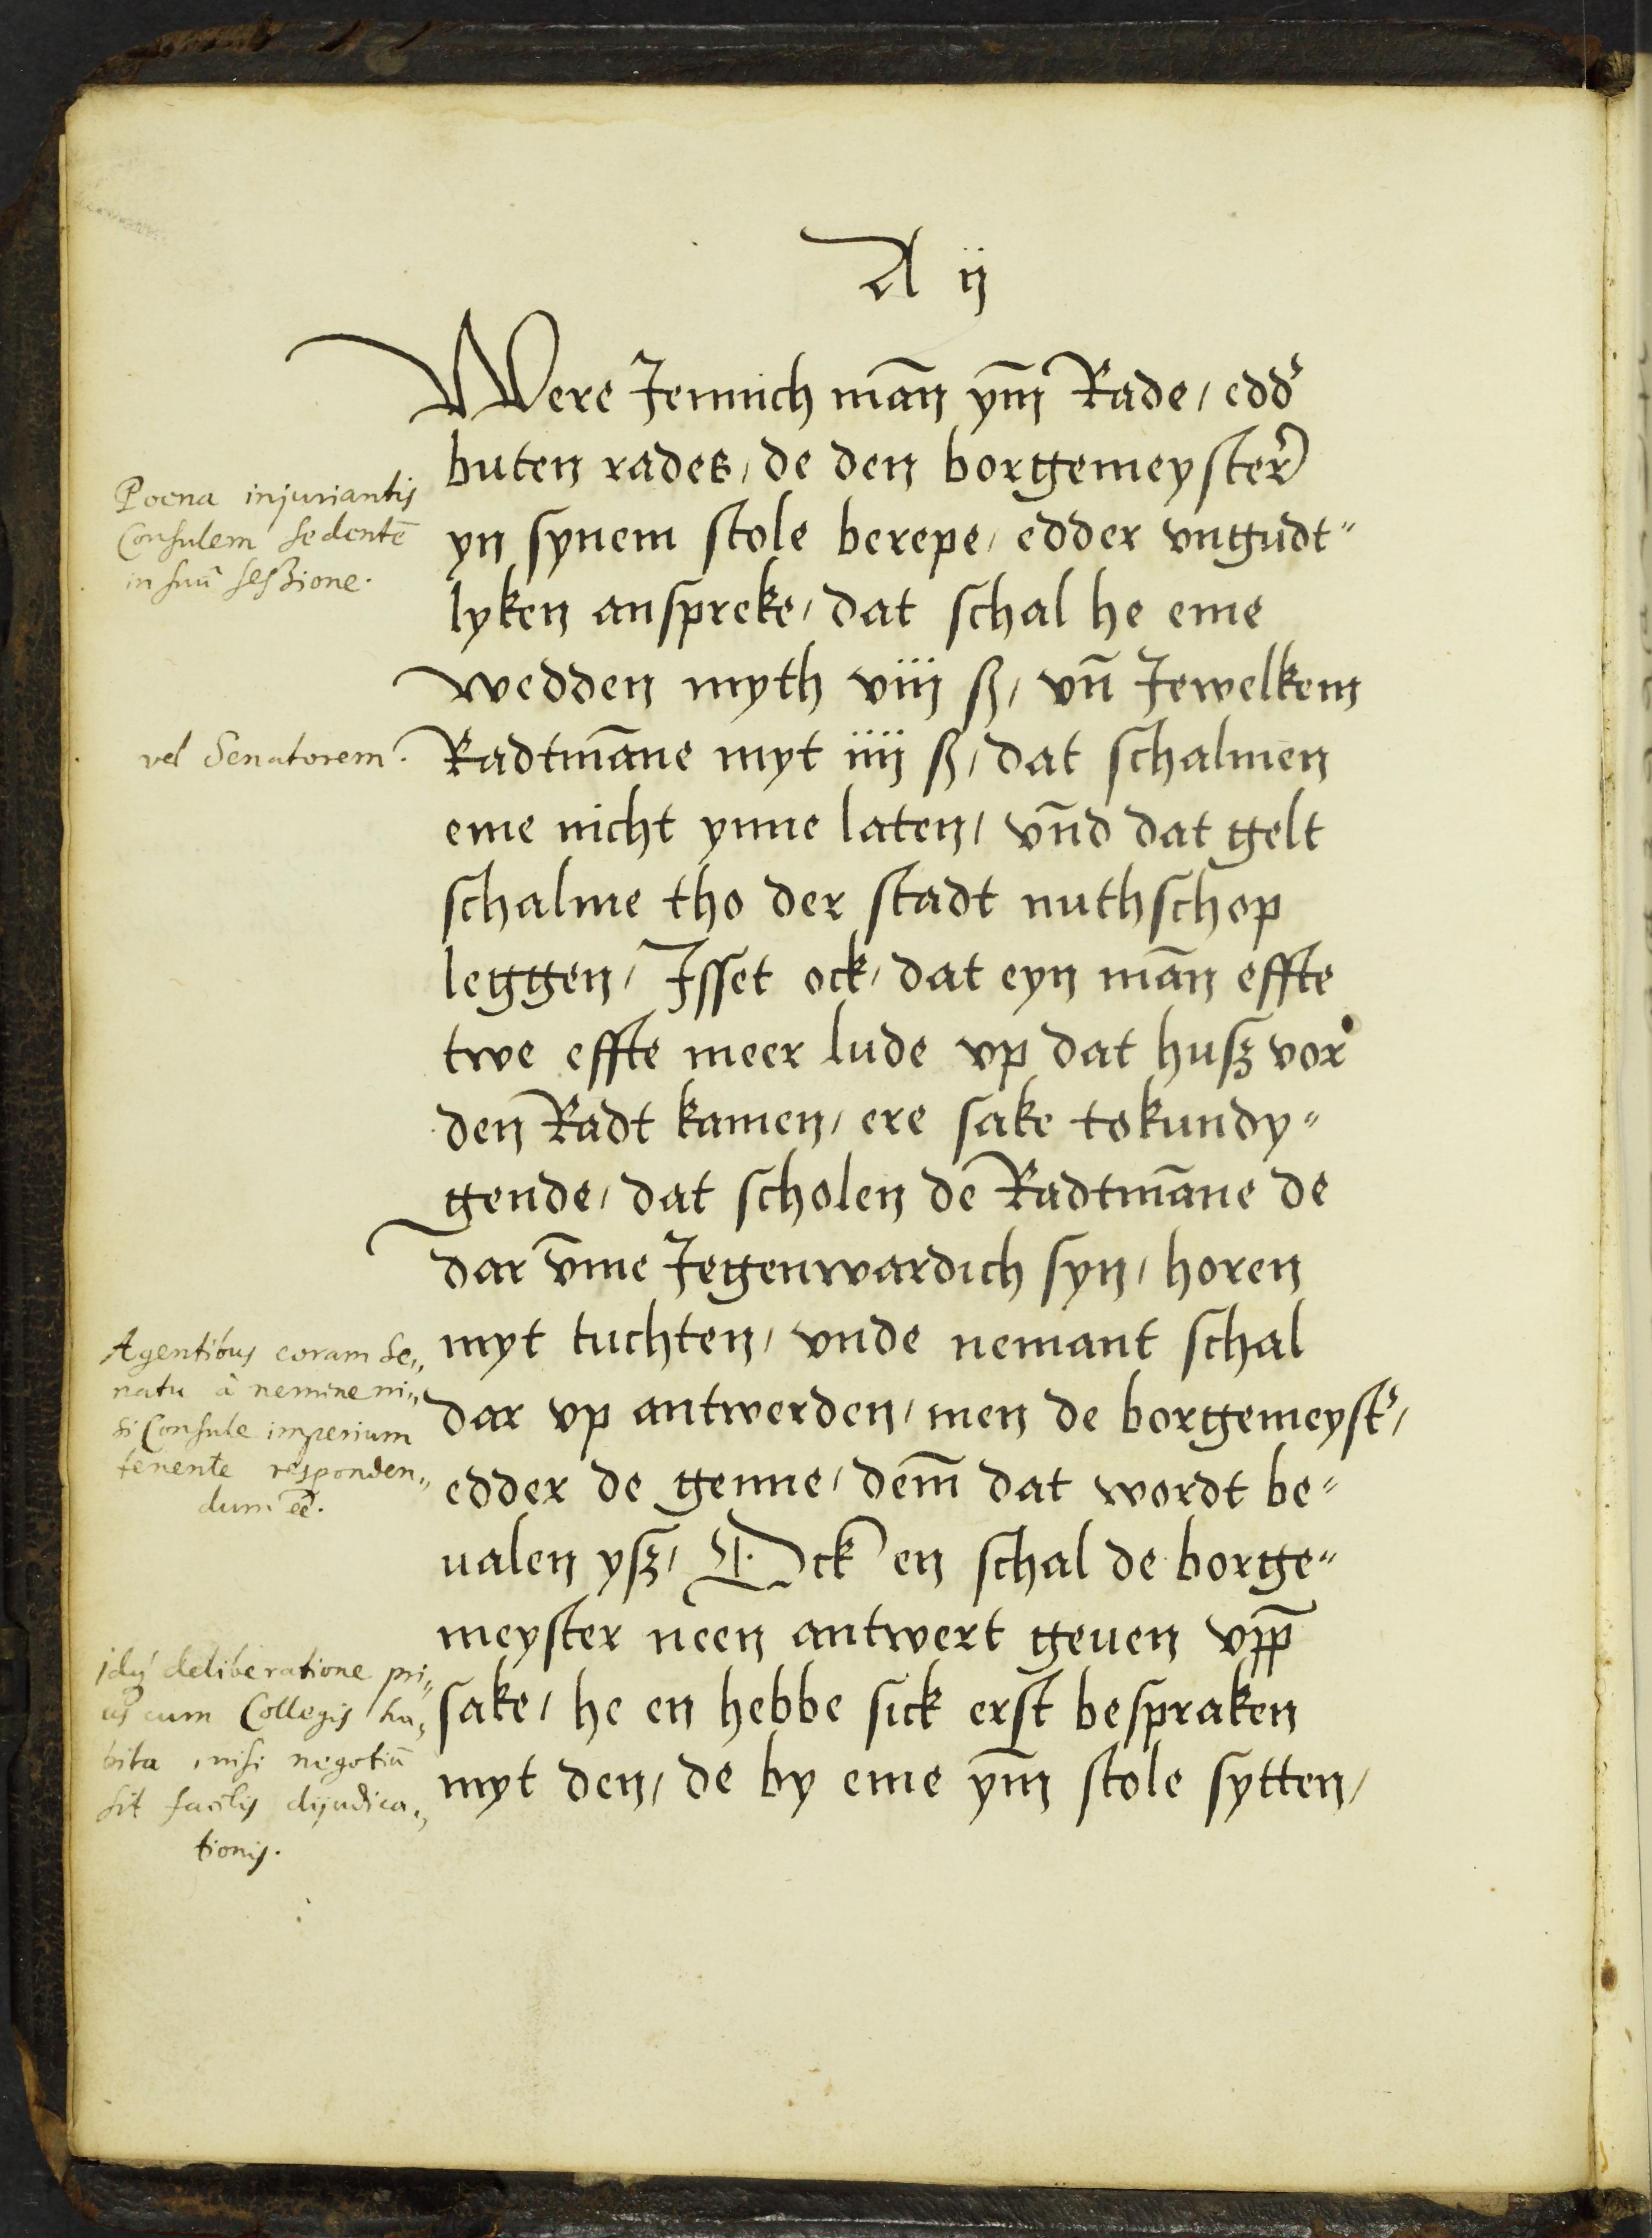 A ij
Were Jennich mañ ym̄ Rade / edd'
buten rades / de den borgemeyster
yn synem stole berepe / edder vngudt"
lyken anspreke / dat schal he eme
wedden myth viij ß / vn̄ Jewelkem
Radtmāne myt iiij ß / dat schalmen
eme nicht ynne laten / vn̄d dat gelt
schalme tho der stadt nuthschop
leggen / Jsset ock / dat eyn mān effte
twe effte meer lude vp dat husz vor
den Radt kamen / ere sake tokundy"
gende / dat scholen de Radtmāne de
dar vm̄e Jegenwardich syn / horen
myt tuchten / vnde nemant schal
dar vp antwerden / men de borgemeyst' /
edder de genne / dem̄ dat wordt be"
ualen ysz / Ock en schal de borge"
meyster neen antwert geuen vpp̄
sake / he en hebbe sick erst bespraken
myt den / de by eme ym̄ stole sytten /
Poena injuriantis
Consulem sedentē
in suū seszione.
vel Senatorem.
Agentibus coram Se„
natu à nemine ni„
si Consule imperium
tenente responden„
dum eē.
idq deliberatione pri„
us cum Collegis ha„
bita, nisi negotiū
sit facilis dijudica„
tionis.